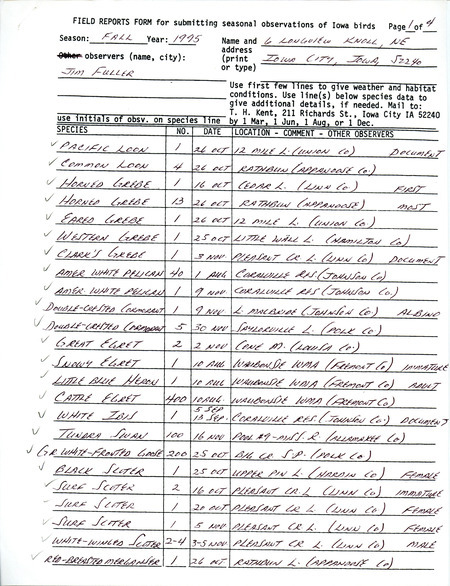 FIELD REPORTS FORM for submitting seasonal observations of Iowa birds Page 1 of 4
Season: FALL Year: 1995 Name and 6 LONGVIEW KNOLL, NE
Other observers (name, city): address
(print IOWA CITY, IOWA, 52240
JIM FULLER or type)
Use first few lines to give weather and habitat
conditions. Use line(s) below species data to
give additional details, if needed. Mail to:
T. H. Kent, 211 Richards St., Iowa City IA 52240
use initials of obsv. on species line by 1 Mar, 1 Jun, 1 Aug, or 1 Dec.
SPECIES NO. DATE LOCATION - COMMENT - OTHER OBSERVERS
✓ PACIFIC LOON 1 26 OCT 12 MILE L. (UNION CO) DOCUMENT
✓ COMMON LOON 4 26 OCT RATHBUN (APPANOOSE CO)
✓ HORNED GREBE 1 16 OCT CEDAR L. (LINN CO) FIRST
✓ HORNED GREBE 13 26 OCT RATHBUN (APPANOOSE) MOST
✓ EARED GREBE 1 26 OCT 12 MILE L. (UNION CO)
✓ WESTERN GREBE 1 25 OCT LITTLE WALL L. (HAMILTON CO)
✓ CLARK'S GREBE 1 3 NOV PLEASANT CR L. (LINN CO) DOCUMENT
✓ AMER WHITE PELICAN 40 1 AUG CORALVILLE RES (JOHNSON CO)
✓ AMER WHITE PELICAN 1 9 NOV CORALVILLE RES (JOHNSON CO)
✓ DOUBLE-CRESTED CORMORANT 1 9 NOV L. MACBRIDE (JOHNSON CO.) ALBINO
✓ DOUBLE-CRESTED CORMORANT 5 30 NOV SAYLORVILLE L. (POLK CO)
✓ GREAT EGRET 2 2 NOV CONE M. (LOUISA CO.)
✓ SNOWY EGRET 1 10 AUG WAUBONSIE WMA (FREMONT CO) IMMATURE
✓ LITTLE BLUE HERON 1 10 AUG WAUBONSIE WMA (FREMONT CO) ADULT
✓ CATTLE EGRET 400 10 AUG WAUBONSIE WMA (FREMONT CO)
✓ WHITE IBIS 1 5 SEP CORALVILLE RES (JOHNSON CO) DOCUMENT
SEP
✓ TUNDRA SWAN 100 16 NOV POOL #9-MISS. R (ALLAMAKEE CO)
✓ GR WHITE-FRONTED GOOSE 200 25 OCT BIG CR S.P. (POLK CO)
✓ BLACK SCOTER 1 25 OCT UPPER PIN L. (HARDIN CO) FEMALE
✓ SURF SCOTER 2 16 OCT PLEASANT CR. L (LINN CO) IMMATURE
✓ SURF SCOTER 1 20 OCT PLEASANT CR L. (LINN CO) FEMALE
✓ SURF SCOTER 1 5 NOV PLEASANT CR L. (LINN CO) FEMALE
✓ WHITE-WINGED SCOTER 2-4 3-5 NOV PLEASANT CR L. (LINN CO) MALE
✓ RED-BREASTED MERGANSER 1 26 OCT RATHBUN L. (APPANOOSE CO)